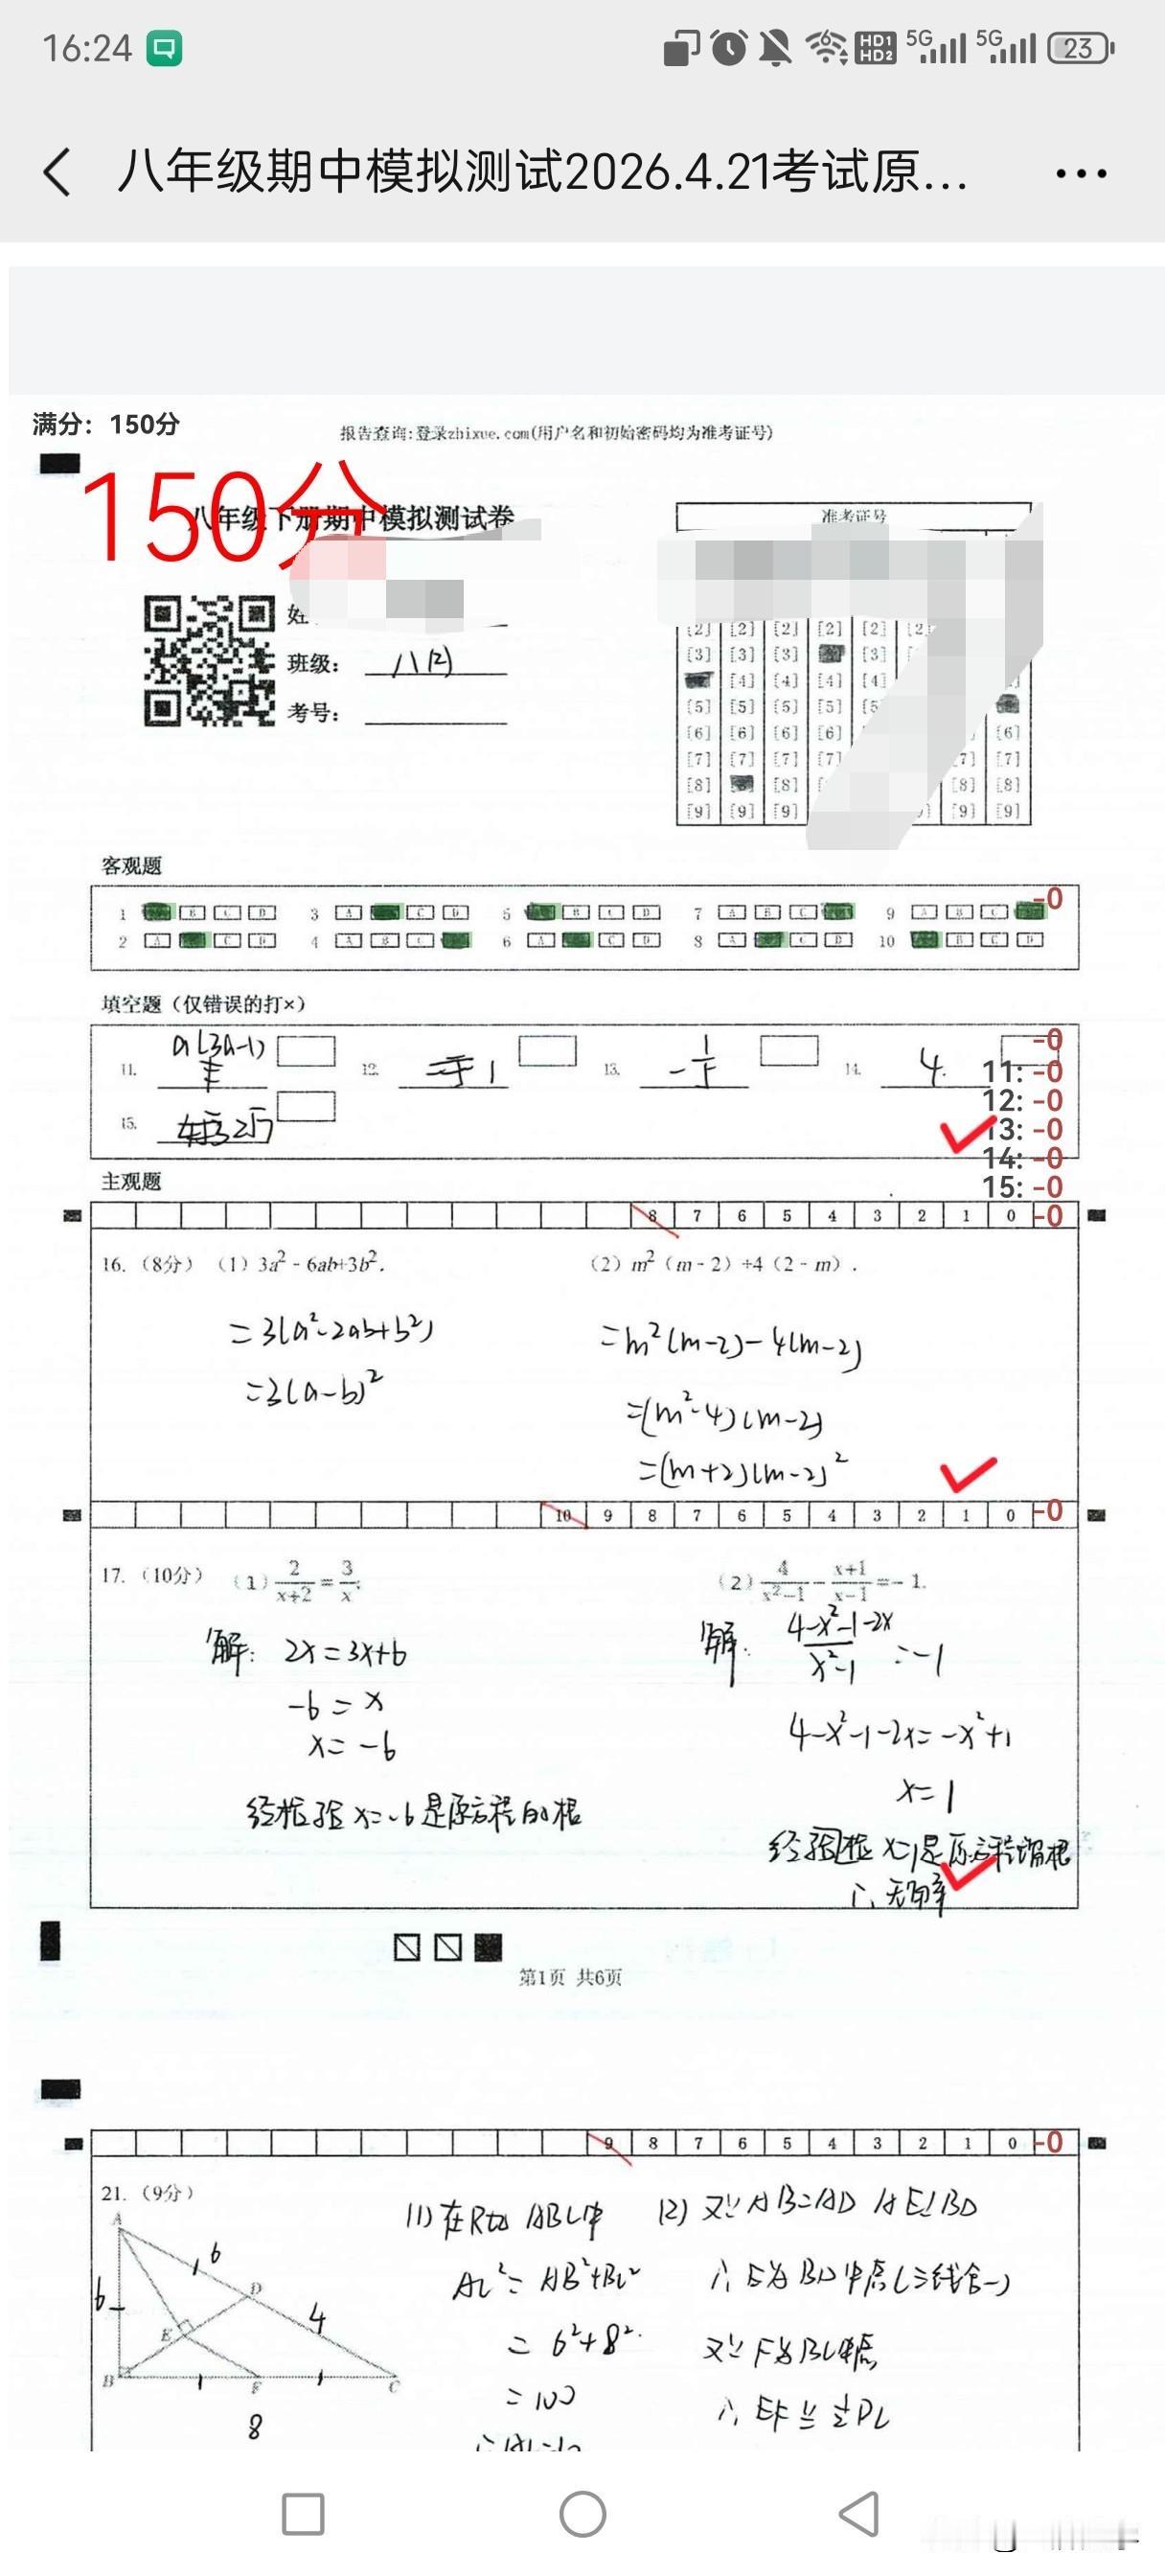 16:24
HD1 HD2 5G 5G 23
八年级期中模拟测试2026.4.21考试原...
满分：150分
报告查询:登录zhixue.com(用户名和初始密码均为准考证号)
150分
八年级下册期中模拟测试卷
准考证号
姓
班级： 八(2)
考号：
[2] [2] [2] [2] [2] [2]
[3] [3] [3] [3]
[4] [4] [4] [4]
[5] [5] [5] [5] [5
[6] [6] [6] [6] [6]
[7] [7] [7] [7] 7] [7]
[8] [8] [8] [8]
[9] [9] [9] [9] [9]
客观题
-0
1 B C D 3 A C D 5 B C D 7 A B C 9 A B C
2 A C D 4 A B C 6 A C D 8 A C D 10 B C D
填空题（仅错误的打×）
-0
11. a(3a-1) 12. 1 13. 14. 4.
11: -0
12: -0
15. 2√7
13: -0
14: -0
15: -0
主观题
8 7 6 5 4 3 2 1 0 -0
16.（8分）（1）3a²-6ab+3b².
（2）m²（m-2）+4（2-m）.
=3(a²-2ab+b²)
=3(a-b)²
=m²(m-2)-4(m-2)
=(m²-4)(m-2)
=(m+2)(m-2)²
10 9 8 7 6 5 4 3 2 1 0 -0
17.（10分）（1）2/(x+2)=3/x;
（2）4/(x²-1)-(x+1)/(x-1)=-1.
解: 2x=3x+6
-6=x
x=-6
经检验x=-6是原方程的根
解: (4-x²-1-2x)/(x²-1)=-1
4-x²-1-2x=-x²+1
x=1
经检 x=1是原方程增根
∴无解
第1页 共6页
9 8 7 6 5 4 3 2 1 0 -0
21.（9分）
A 6 D 4 6 E B F C 8
(1)在Rt△ABC中
AC²=AB²+BC²
=6²+8²
=100
(2)又∵AB=AD AE⊥BD
∴E为BD中点(三线合一)
又∵F为BC中点
∴EF 1/2DC